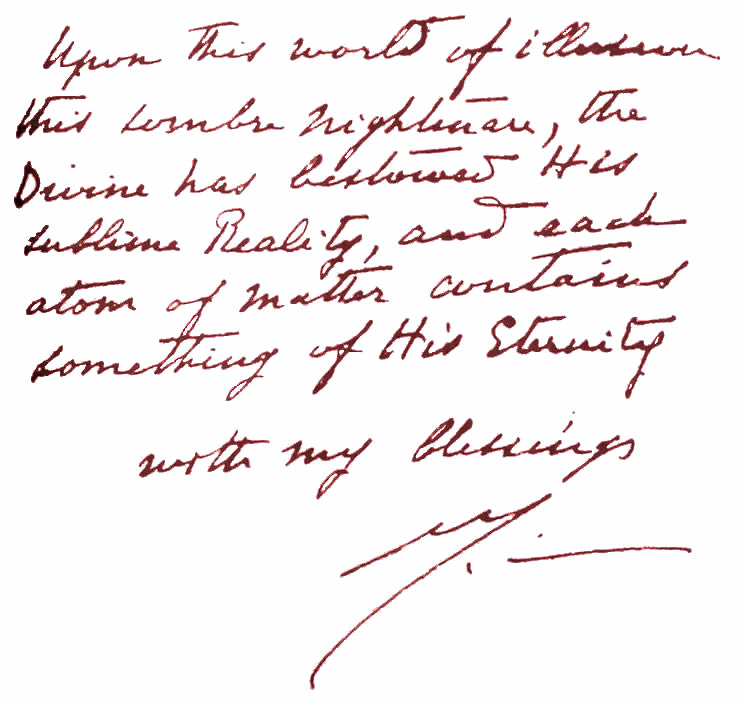 Upon this world of illusion
this sombre nightmare, the
Divine has bestowed His
sublime Reality, and each
atom of matter contains
something of His Eternity
with my blessings